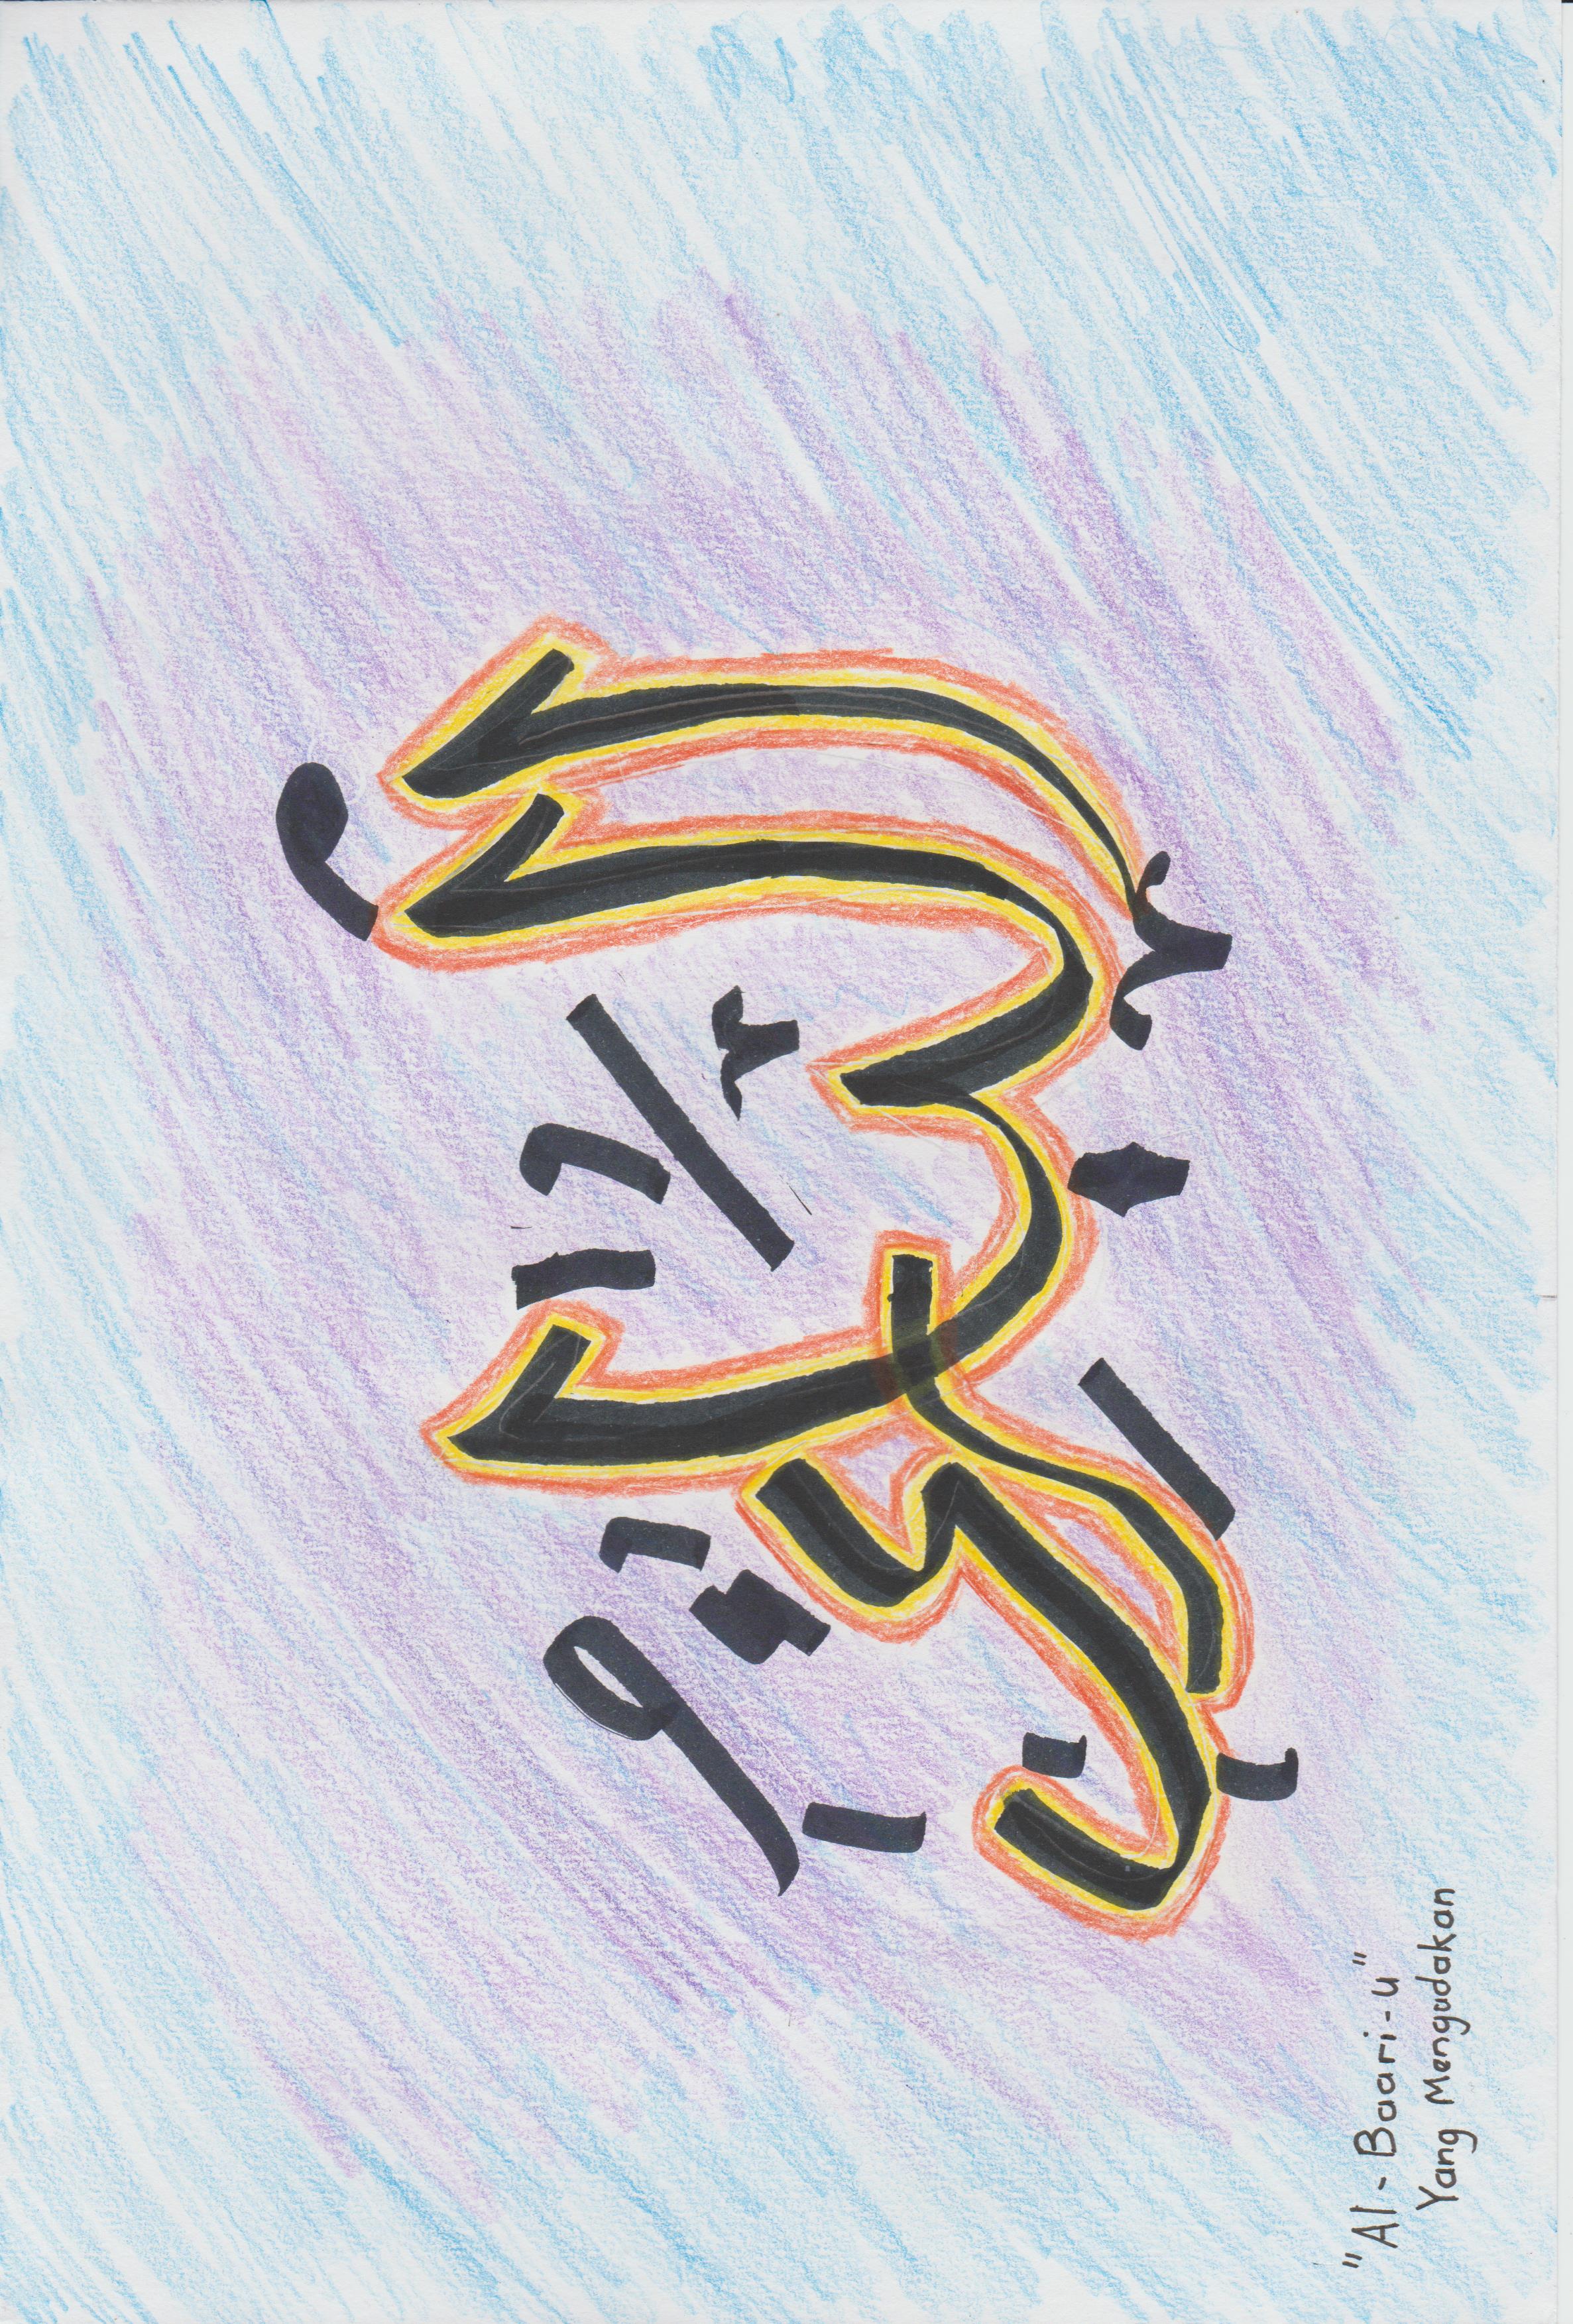 الْبَارِئُ
"Al-Baari-u"
Yang Mengudakan